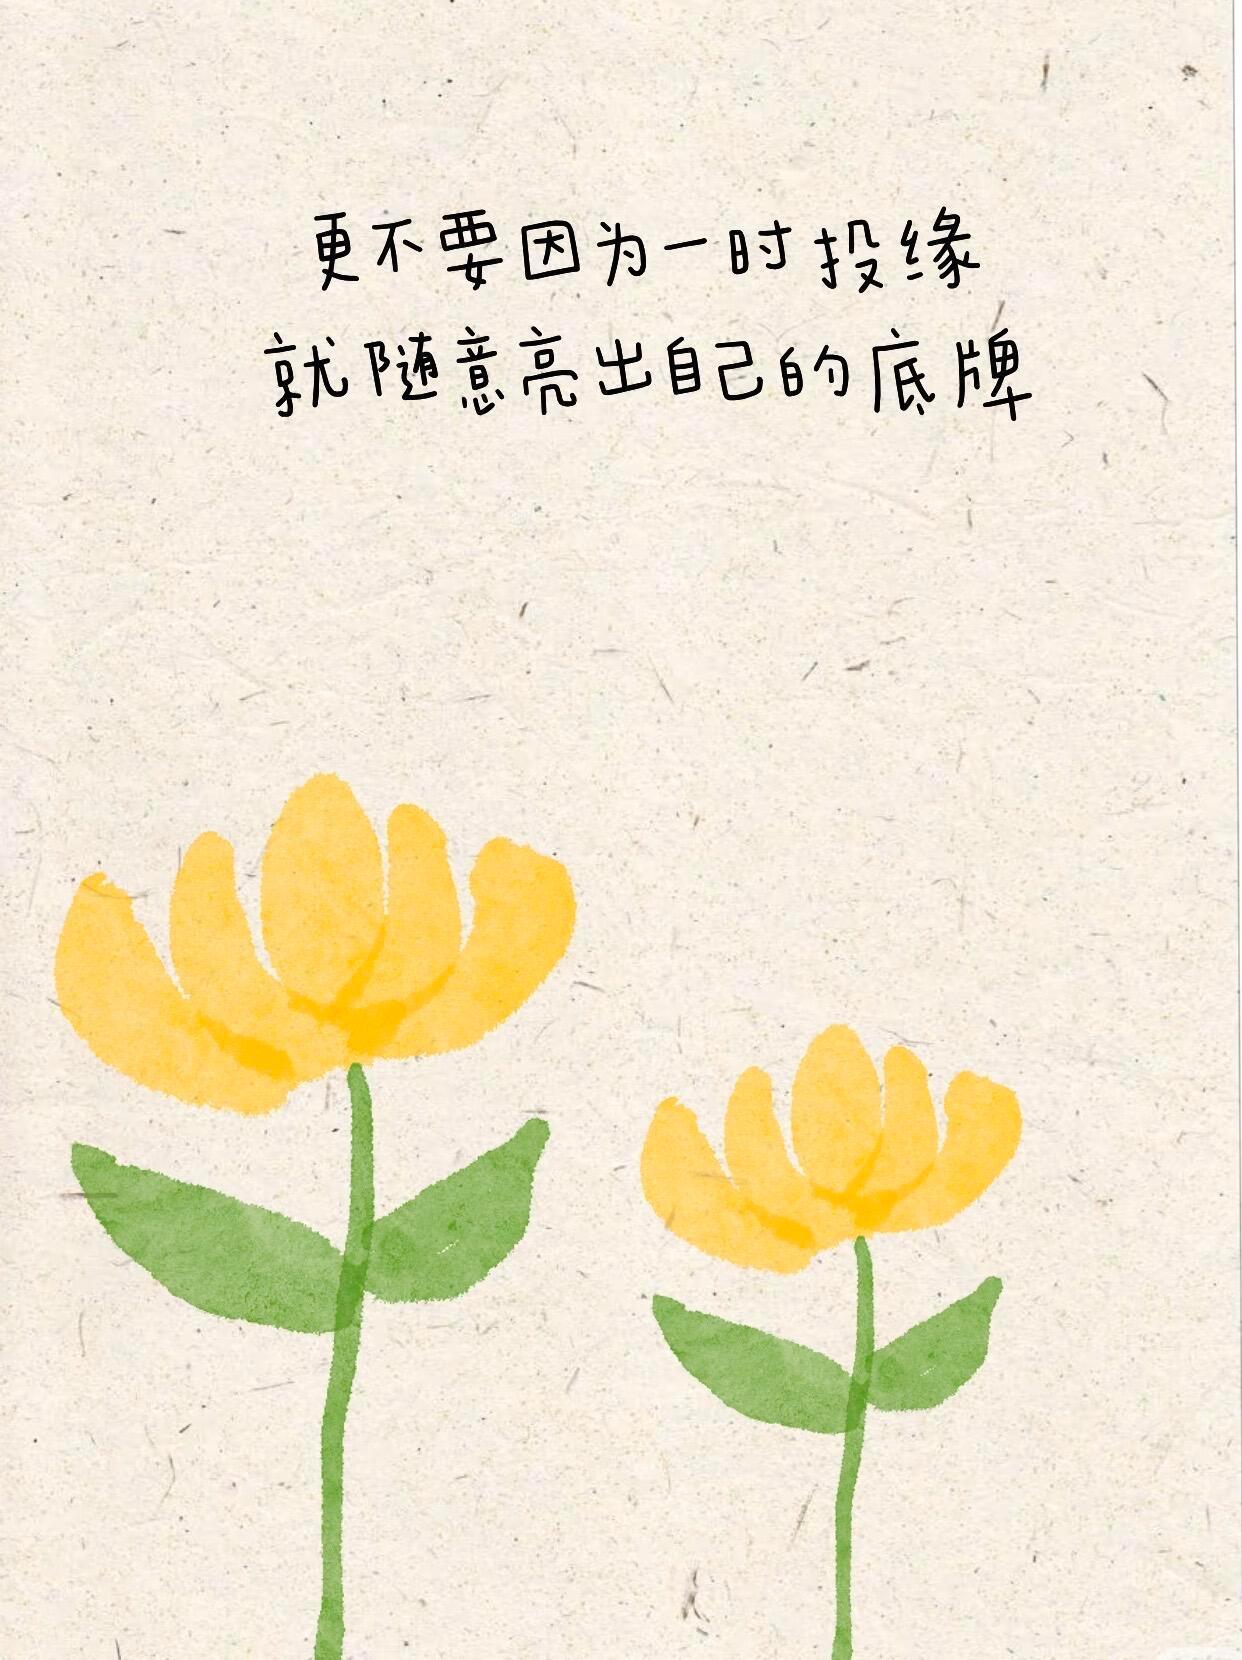 更不要因为一时投缘
就随意亮出自己的底牌